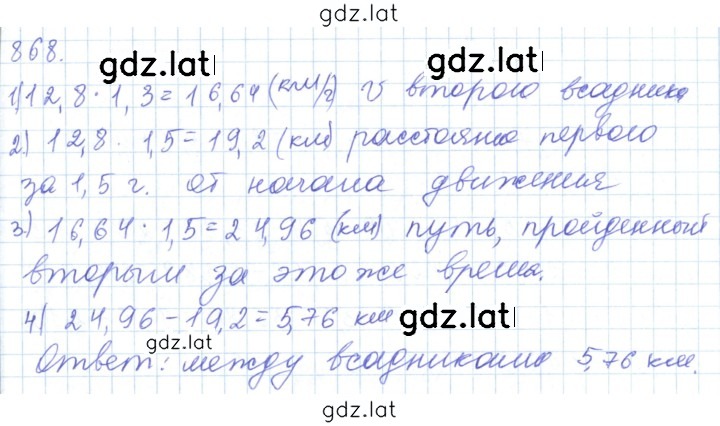 gdz.lat
868.
gdz.lat gdz.lat
1) 12,8 · 1,3 = 16,64 (км/г) v второго всадника
2) 12,8 · 1,5 = 19,2 (км) расстояние первого
за 1,5 г. от начала движения
3) 16,64 · 1,5 = 24,96 (км) путь, пройденный
вторым за это же время.
4) 24,96 - 19,2 = 5,76 км
gdz.lat gdz.lat
Ответ: между всадниками 5,76 км.
gdz.lat